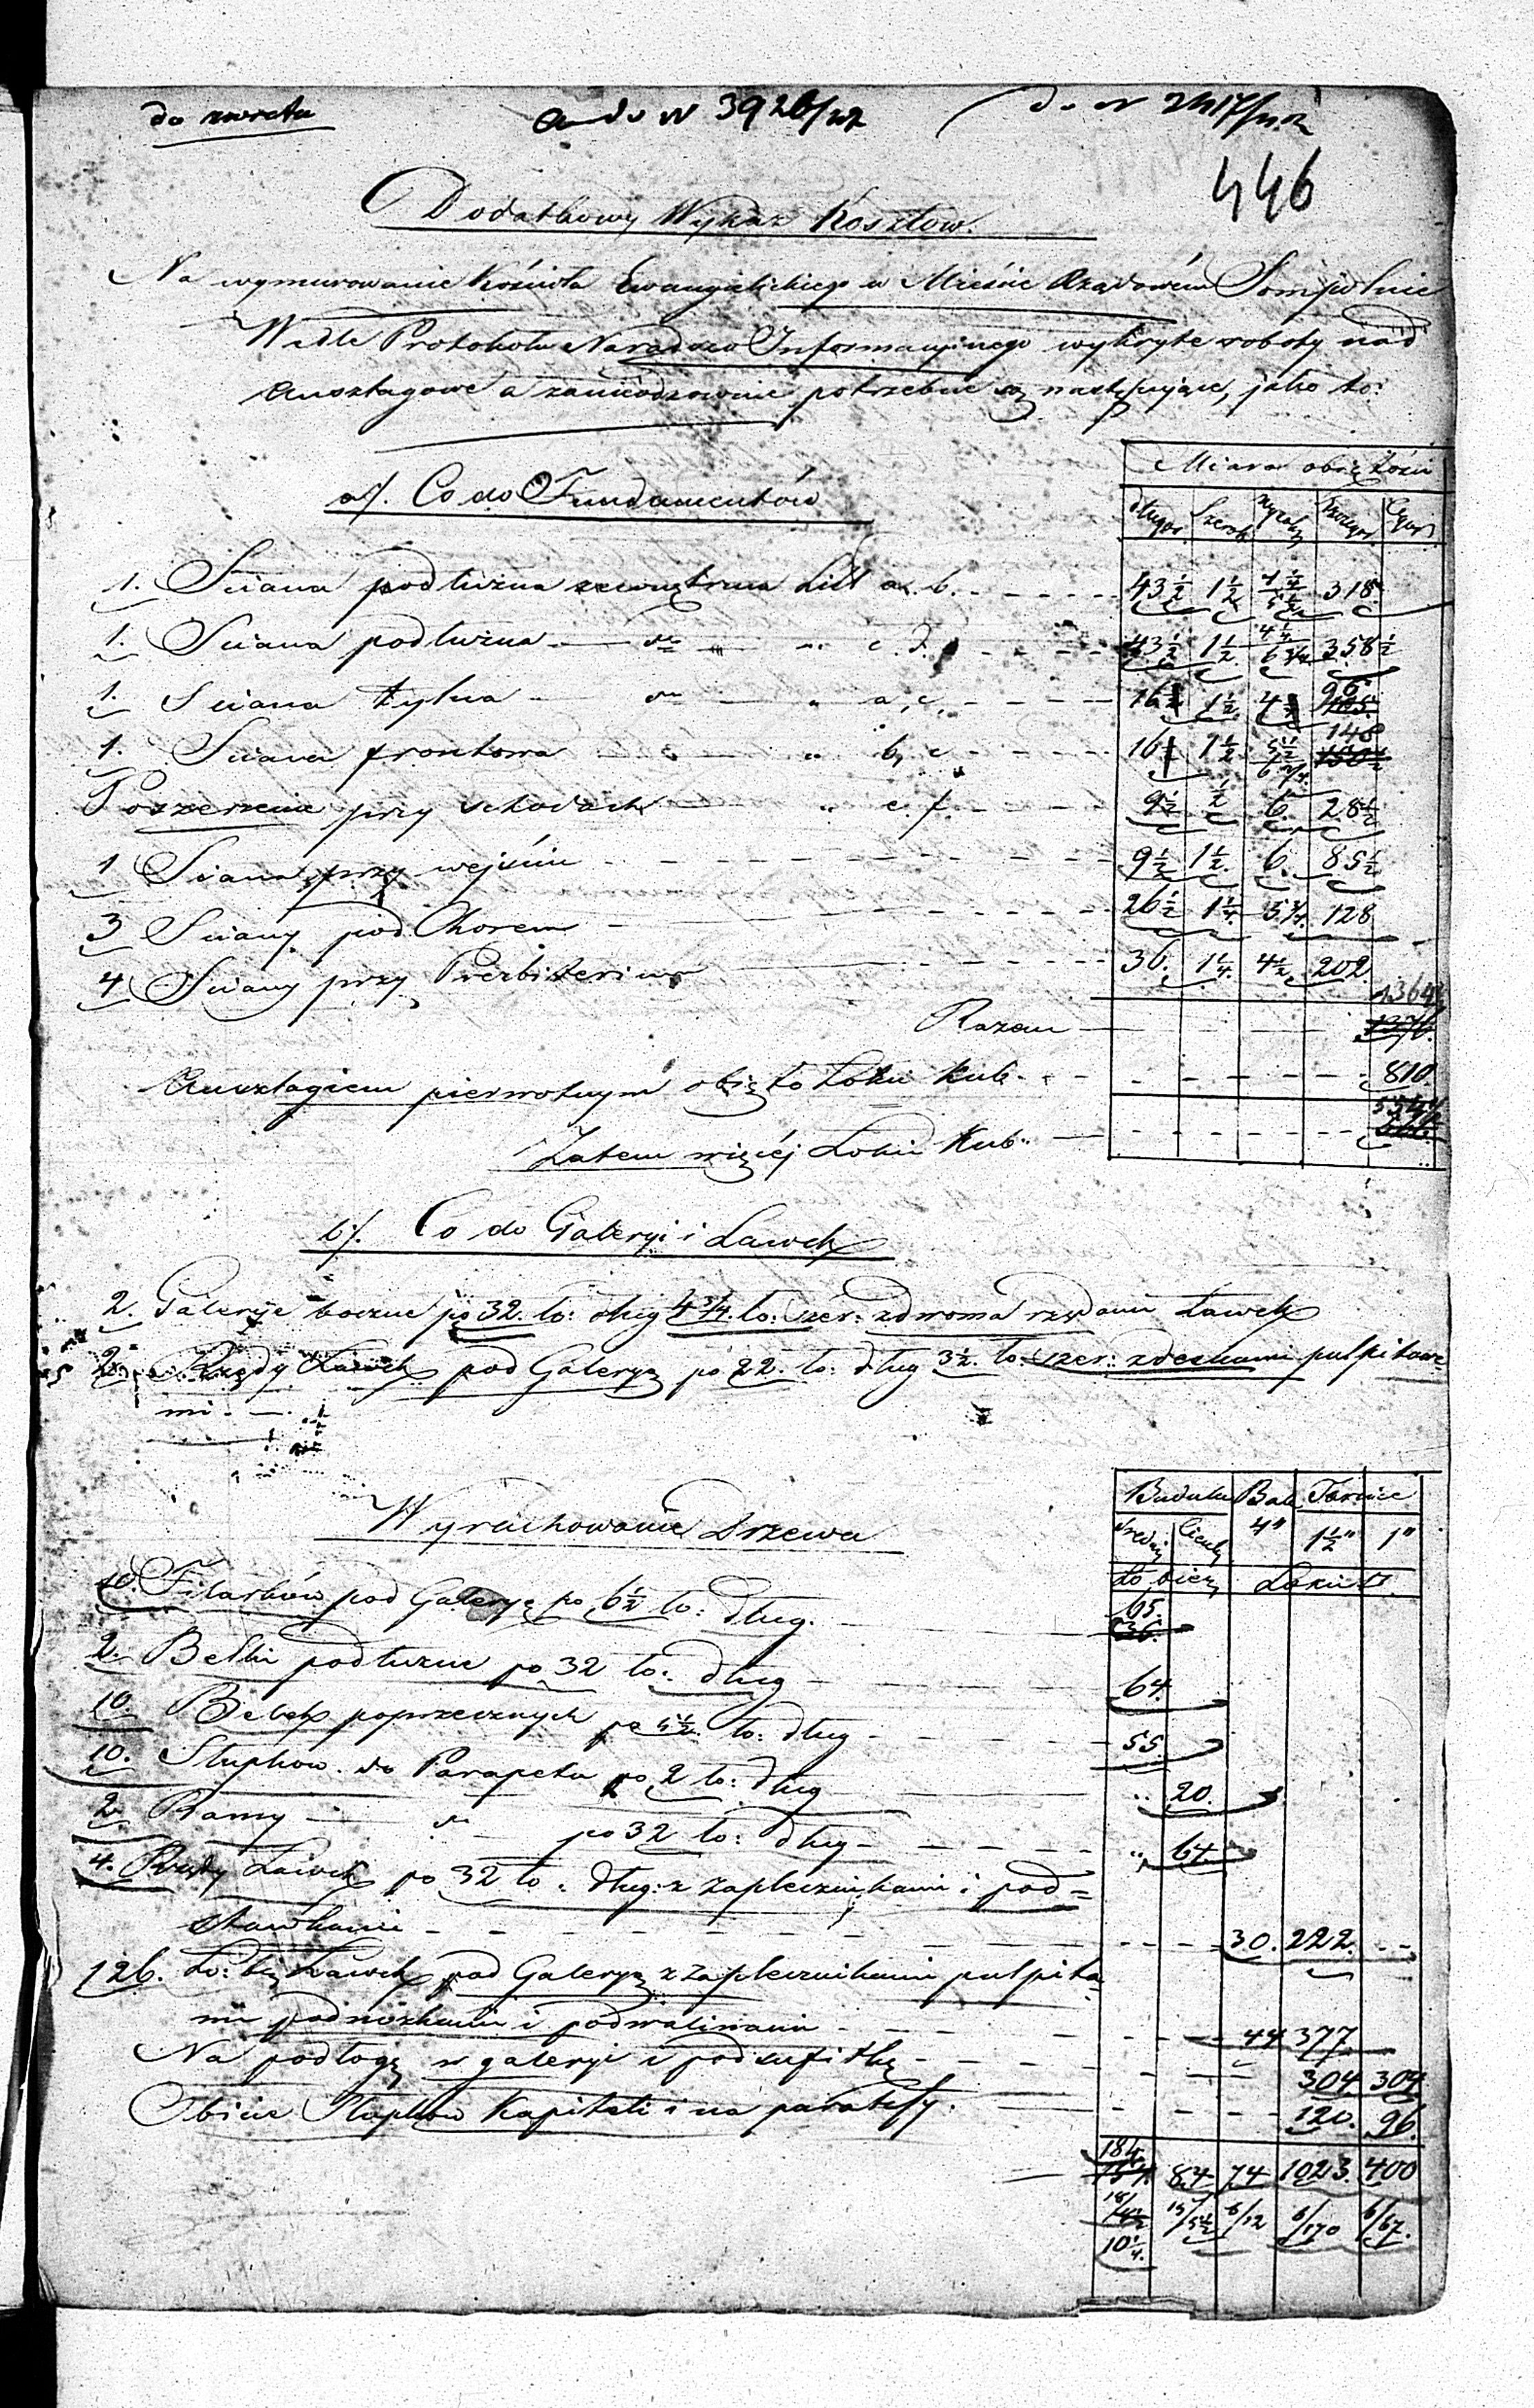 do zwrotu
do N 3926/27
do N
446
Dodatkowy Wykaz Kosztow.
Na wymurowanie Kościoła Ewangelickiego w Mieście Rządowém Sompolnie
Wedle Protokołu Naradczo Informacyjnego wykryte roboty nad
Anszlagowe a zanieodzownie potrzebne są następujące, jako to:
Miara objętości
a/. Co do Fundamentów
długoś. Szerok. Wysokoś
1. Sciana podłużna zewnętrzna Litt a. b. 43½ 1½ 318
1. Sciana podłużna do " c. d. 43½ 1½ 6¾ 358½
1. Sciana tylna do " a, c, 16 1½ 4 96
1. Sciana frontowa " b, 16 1½ 148
Poszerzenie przy schodach " e. f. 9½ ½ 6. 28½
1 Sciana przy wejściu 9½ 1½ 6. 85½
3 Sciany pod Chorem 26½ 1¼ 128
4 Sciany przy Prezbiterium 36. 1¼ 4½ 202
Razem 1376.
Anszlagiem pierwotnym objęto Łokci Kub. 810.
Zatem więcéj Łokci Kub.
b/. Co do Galeryi i Ławek
2. Galerye boczne po 32. ło: dług 4¾. ło: szer: z dwoma rzędami Ławek
2. Rzędy Ławek pod Galeryą po 22. ło: dług 3½. ło: szer: z deskami pulpitowe
mi.
Wyrachowanie Drzewa
Budulcu Bale Tarcice
średni Cienki 4" 1½" 1"
Ło bież Łokci
10. Filarków pod Galeryą po 6½ ło: dług. 65.
2. Belki podłużne po 32 ło: dług 64.
10. Belek poprzecznych po 5½ ło: dług 55.
10. Słupkow do Parapetu po 2 ło: dług " 20.
2 Ramy do po 32 ło: dług " 64.
4. Rzędy Ławek po 32 ło: dług: z zapleznikami i pod=
stawkami 30. 222.
126. Ło: bż Ławek pod Galeryą z zaplecznikami pulpita
mi podnóżkami i podwalinami 44 377
Na podłogę w galeryi i podsufitkę 304 304
Obicie Słupkow Kapiteli i na parapety. 120. 96.
184 84 74 1023. 400
6/12 6/170 6/67.
10¼.